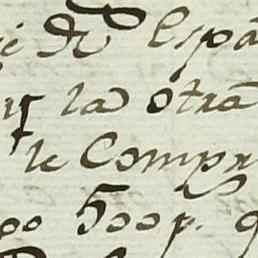 de Espa
la otra
le Compr
500 p.